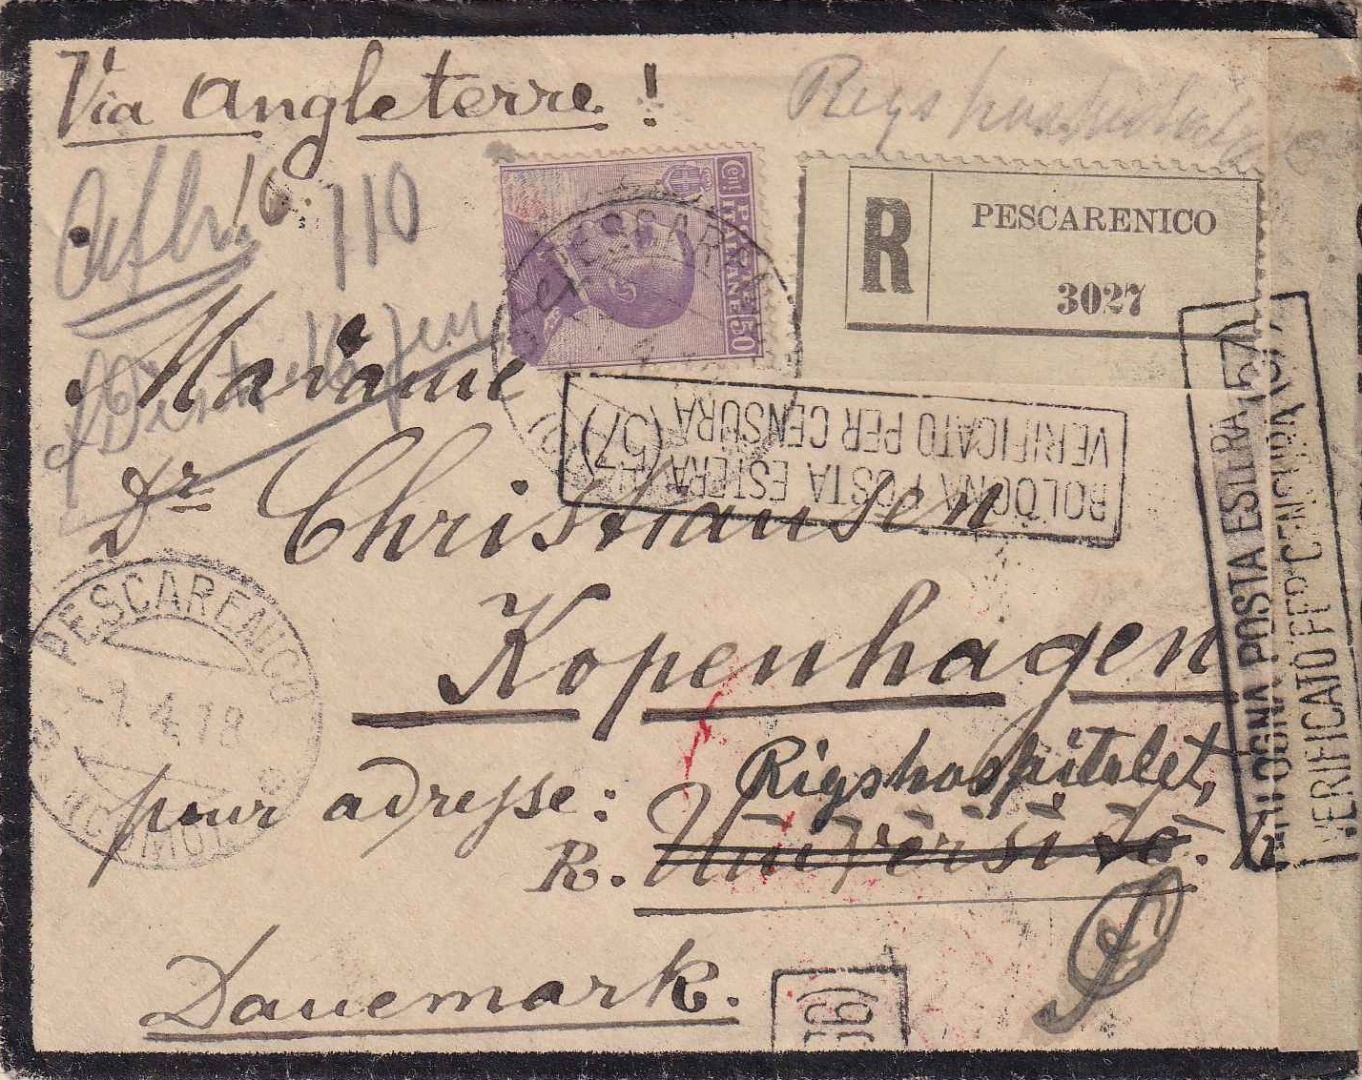 Via Angleterre !
Rigshospitalet
110
CENT. 50
POSTE ITALIANE
R
PESCARENICO
3027
Madame
Dr Christiansen
BOLOGNA POSTA ESTERA (57)
VERIFICATO PER CENSURA
BOLOGNA POSTA ESTERA (57)
VERIFICATO PER CENSURA
Kopenhagen
PESCARENICO
-7.4.18
(COMO)
pour adresse: Rigshospitalet,
R.
Danemark.